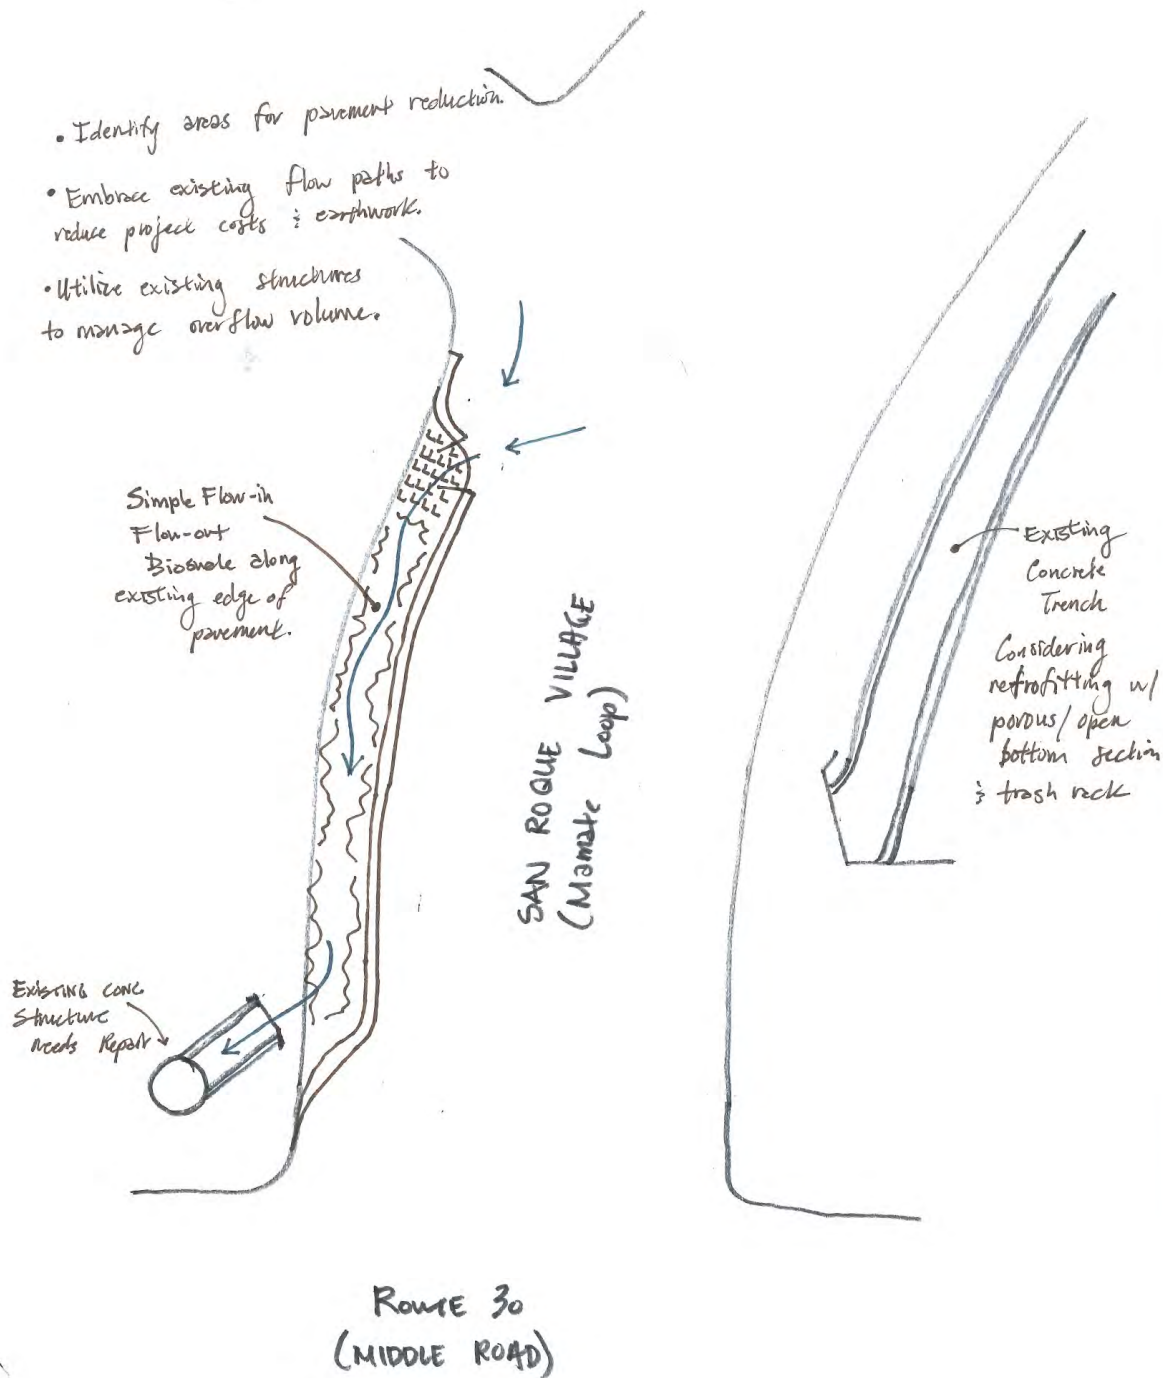 • Identify areas for pavement reduction.
• Embrace existing flow paths to
reduce project costs & earthwork.
• Utilize existing structures
to manage overflow volume.
Simple Flow-in
Flow-out
Bioswale along
existing edge of
pavement.
Existing
Concrete
Trench
Considering
retrofitting w/
porous/open
bottom section
& trash rack
SAN ROQUE VILLAGE
(Mamate Loop)
EXISTING CONC
Structure
needs Repair
ROUTE 30
(MIDDLE ROAD)